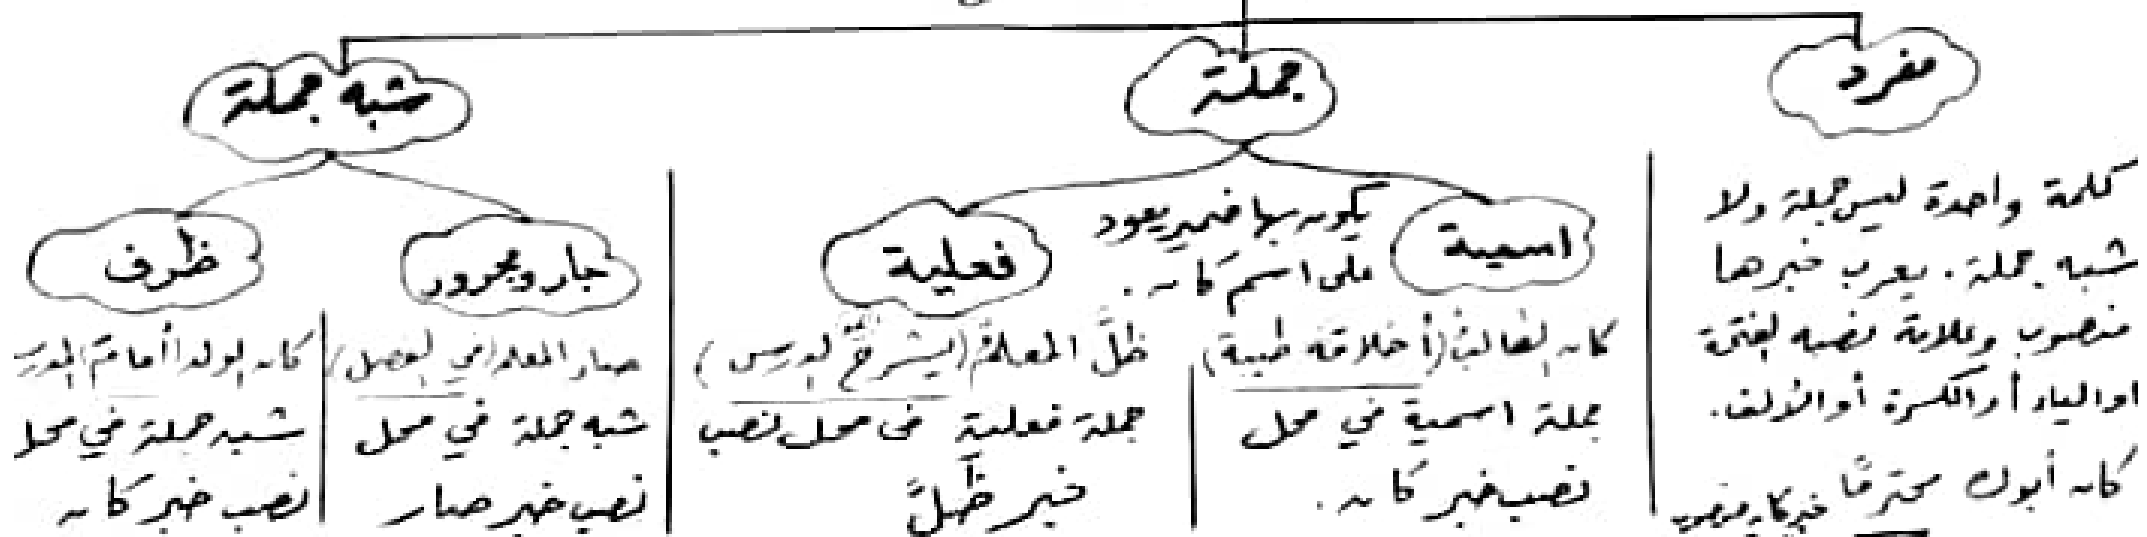 مفرد
كلمة واحدة ليس جملة ولا
شبه جملة. يعرب خبرها
منصوب وعلامة نصبه الفتحة
او الياء أو الكسرة أو الألف.
كان أبوك محترمًا خبر كان منصوب
جملة
اسمية
يكون بها ضمير يعود
على اسم كان.
كان الطالبُ (أخلاقه طيبة)
جملة اسمية في محل
نصب خبر كان.
فعلية
ظلَّ المعلمُ (يشرحُ الدرس)
جملة فعلية في محل نصب
خبر ظلَّ
شبه جملة
جار ومجرور
صار المعلم (في الفصل)
شبه جملة في محل
نصب خبر صار
ظرف
كان الولد أمامَ
شبه جملة في محل
نصب خبر كان